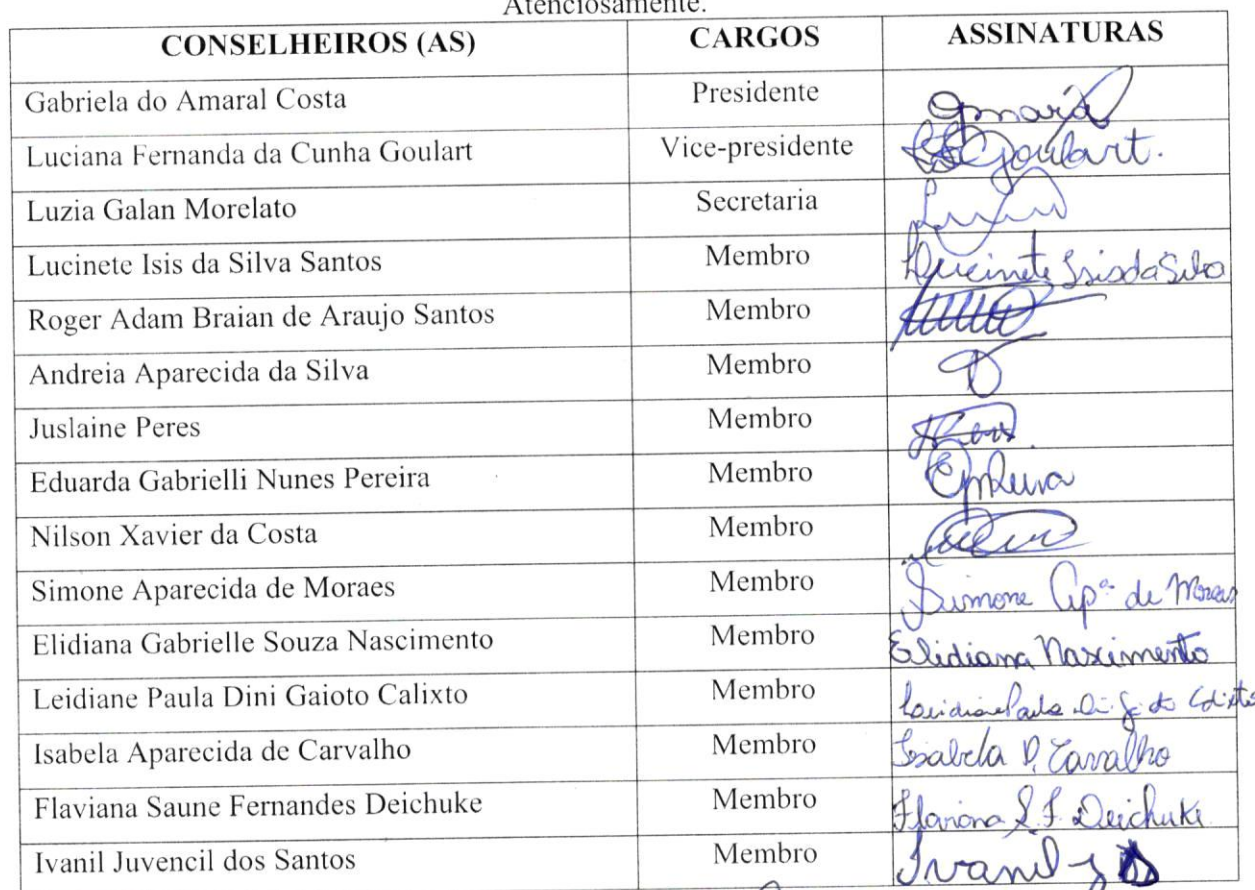 Atenciosamente.
CONSELHEIROS (AS) CARGOS ASSINATURAS
Gabriela do Amaral Costa Presidente
Luciana Fernanda da Cunha Goulart Vice-presidente Goulart.
Luzia Galan Morelato Secretaria
Lucinete Isis da Silva Santos Membro Lucinete Isis da Silva
Roger Adam Braian de Araujo Santos Membro
Andreia Aparecida da Silva Membro
Juslaine Peres Membro
Eduarda Gabrielli Nunes Pereira Membro
Nilson Xavier da Costa Membro
Simone Aparecida de Moraes Membro Simone Apª de Moraes
Elidiana Gabrielle Souza Nascimento Membro Elidiana Nascimento
Leidiane Paula Dini Gaioto Calixto Membro Leidiane Paula
Isabela Aparecida de Carvalho Membro Isabela Carvalho
Flaviana Saune Fernandes Deichuke Membro Flaviana S. F. Deichuke
Ivanil Juvencil dos Santos Membro Ivanil J